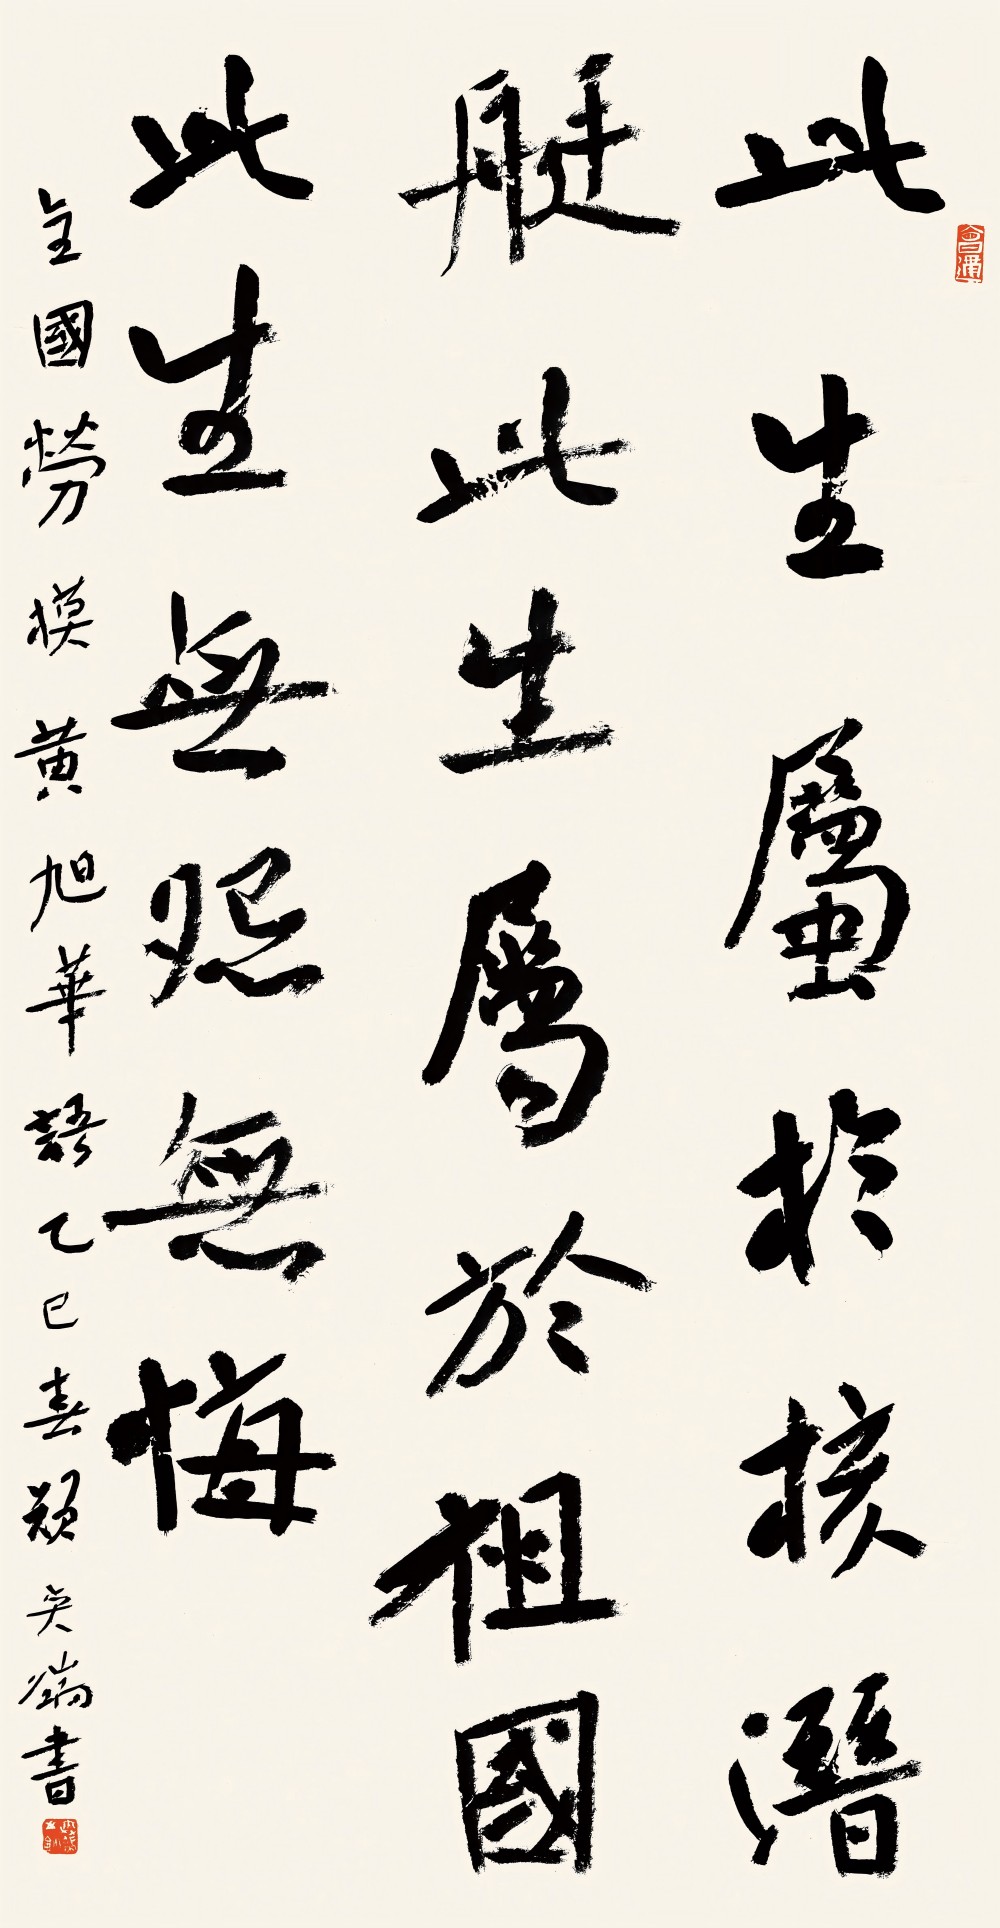 此生屬於核潛
艇此生屬於祖國
此生無怨無悔
全國勞模黃旭華語乙巳春穎奕端書